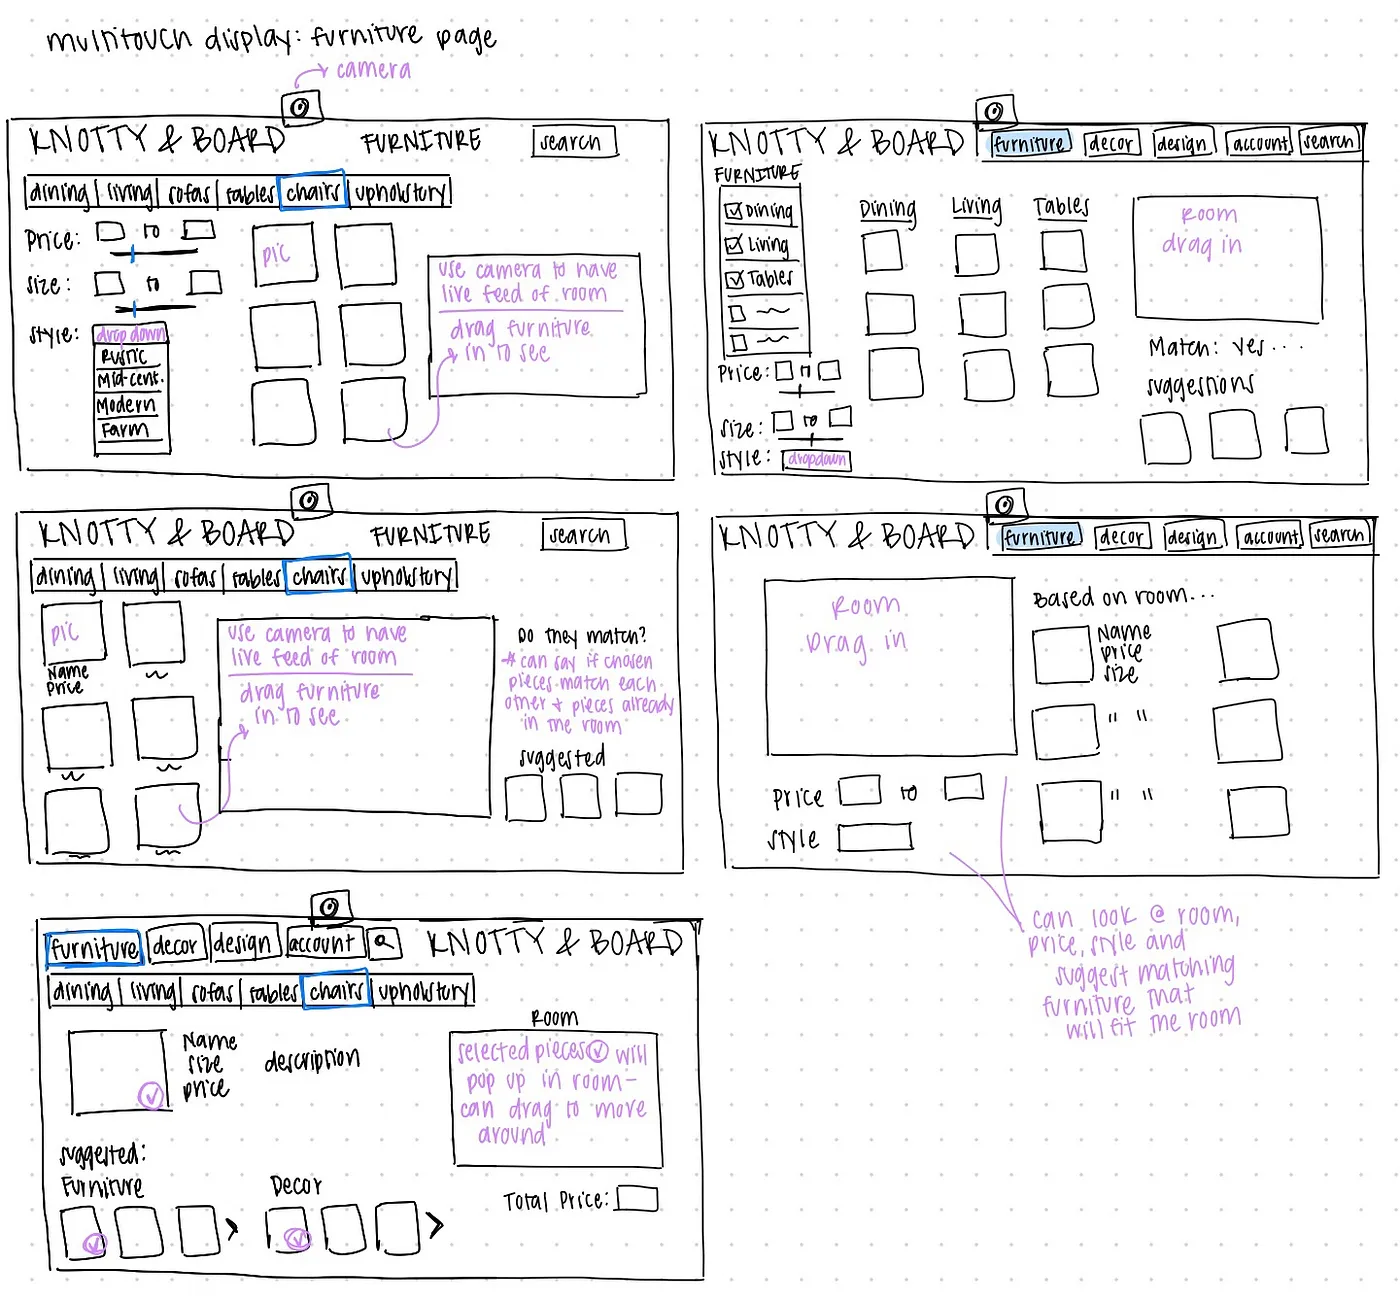 multitouch display: furniture page
camera
KNOTTY & BOARD FURNITURE search
dining living sofas tables chairs upholstery
Price: to
size: to
style: drop down
Rustic
Mid-cent.
Modern
Farm
pic
use camera to have
live feed of room
drag furniture
in to see
KNOTTY & BOARD furniture decor design account search
FURNITURE
Dining
Living
Tables
Price: to
size: to
style: dropdown
Dining Living Tables
Room
drag in
Match: yes....
suggestions
KNOTTY & BOARD FURNITURE search
dining living sofas tables chairs upholstery
pic
Name
Price
use camera to have
live feed of room
drag furniture
in to see
Do they match?
* can say if chosen
pieces match each
other + pieces already
in the room
suggested
KNOTTY & BOARD furniture decor design account search
Room
Drag in
Price to
style
Based on room...
Name
price
size
" "
" "
can look @ room,
price, style and
suggest matching
furniture that
will fit the room
furniture decor design account KNOTTY & BOARD
dining living sofas tables chairs upholstery
Name
size
price
description
Room
selected pieces will
pop up in room-
can drag to move
around
suggested:
Furniture Decor
Total Price: